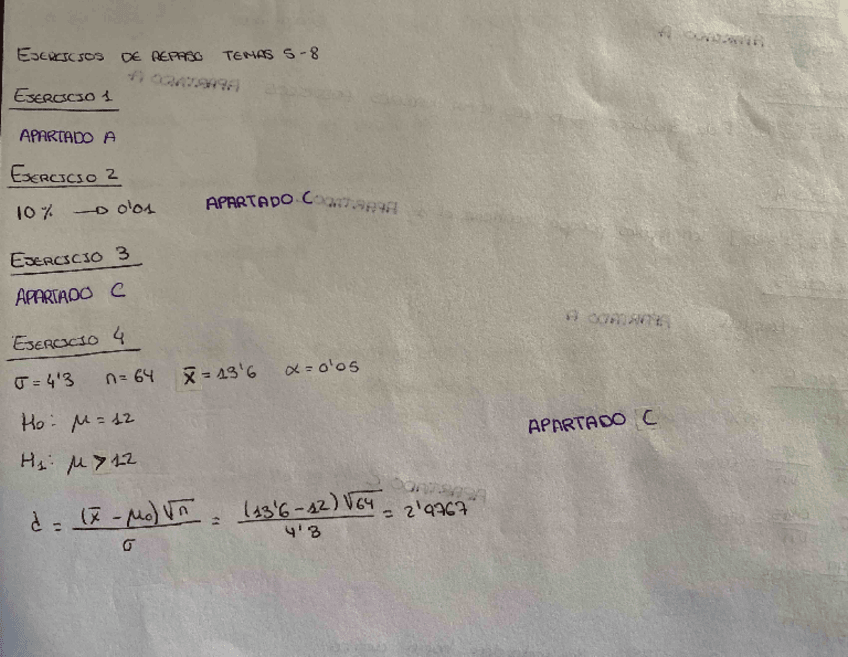 EJERCICIOS DE REPASO TEMAS 5-8
EJERCICIO 1
APARTADO A
EJERCICIO 2
10% → 0'01 APARTADO C
EJERCICIO 3
APARTADO C
EJERCICIO 4
σ = 4'3 n = 64 x̄ = 13'6 α = 0'05
H₀: μ = 12
APARTADO C
H₁: μ > 12
d = (x̄ - μ₀)√n / σ = (13'6 - 12)√64 / 4'3 = 2'9767